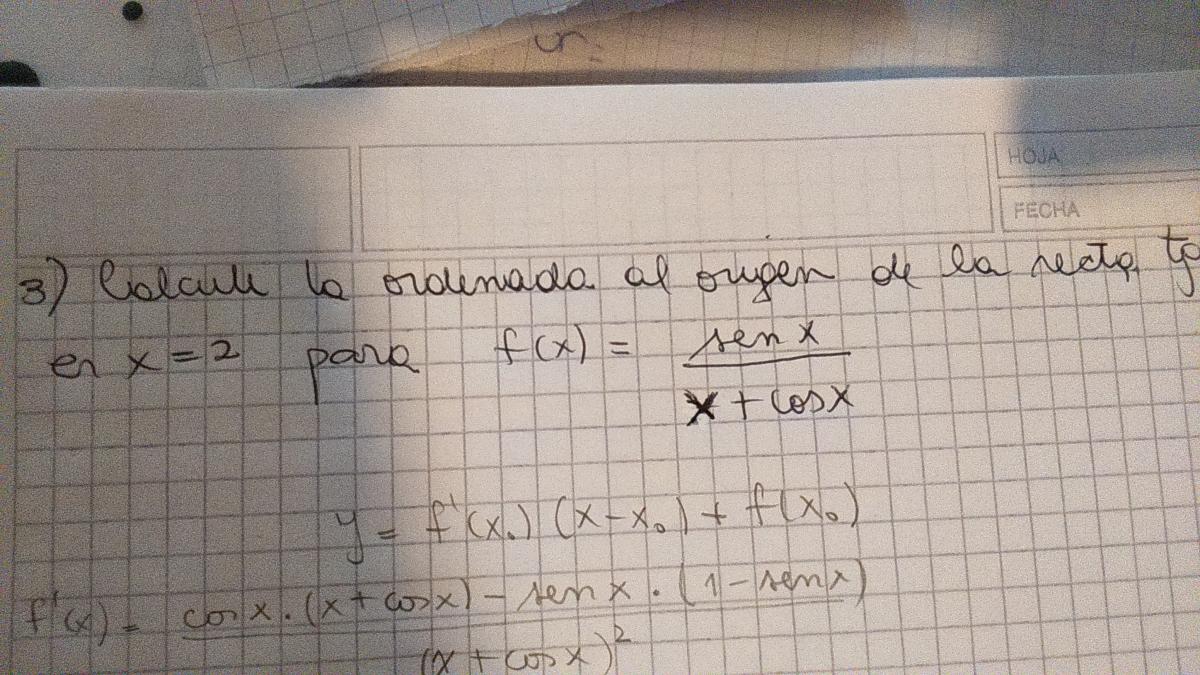 HOJA
FECHA
3) Calcule la ordenada al origen de la recta tg
en x = 2 para f(x) = sen x / x + cos x
y = f'(x₀) (x - x₀) + f(x₀)
f'(x) = cos x . (x + cos x) - sen x . (1 - sen x) / (x + cos x)²